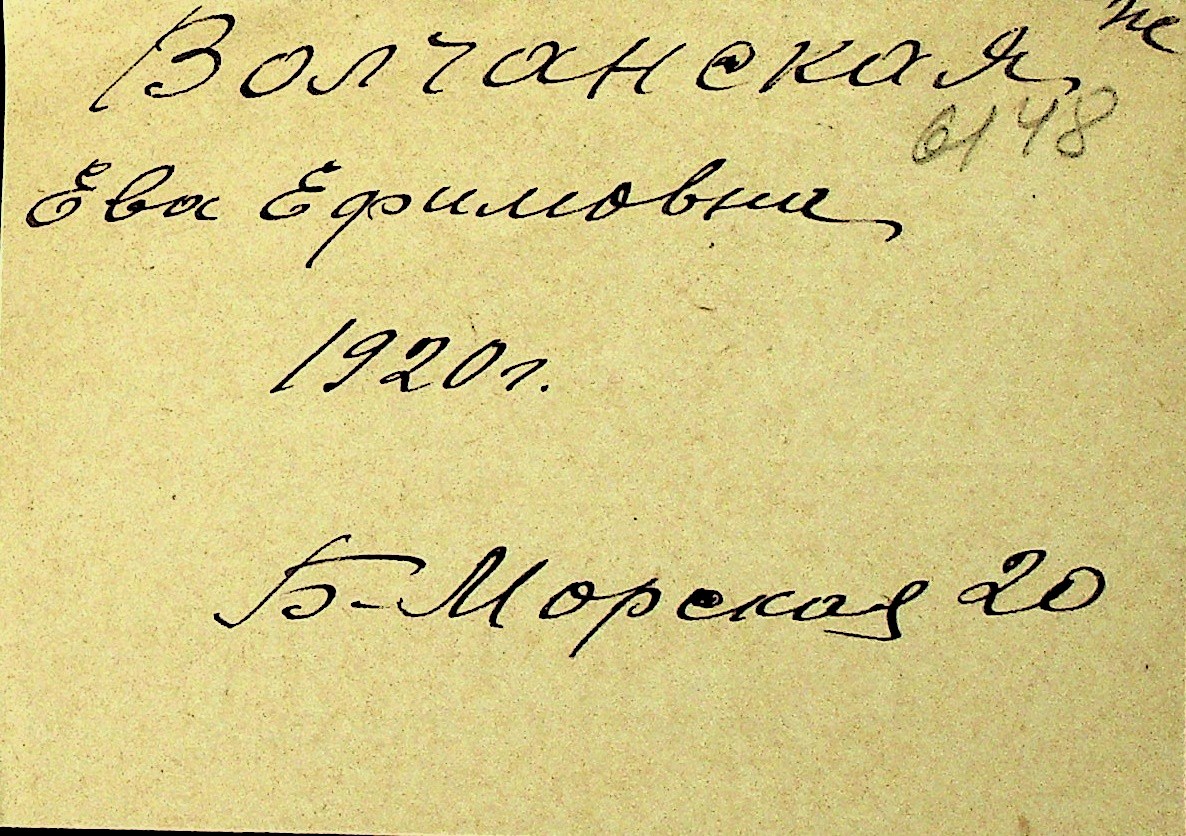 Волчанская
6148
Ева Ефимовна
1920г.
Б-Морская 20